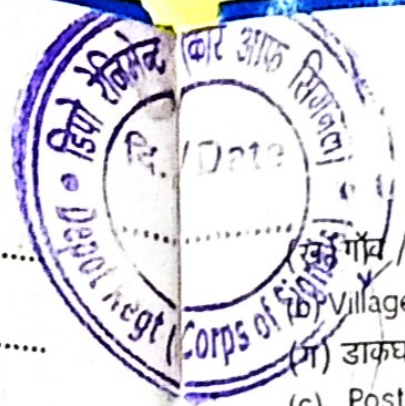 डिपो रेजिमेन्ट (कोर आफ सिगनल)
दि./Date
Depot Regt (Corps of Signals)
(ख) गाँव /
(b) Village
(ग) डाकघ
(c) Post